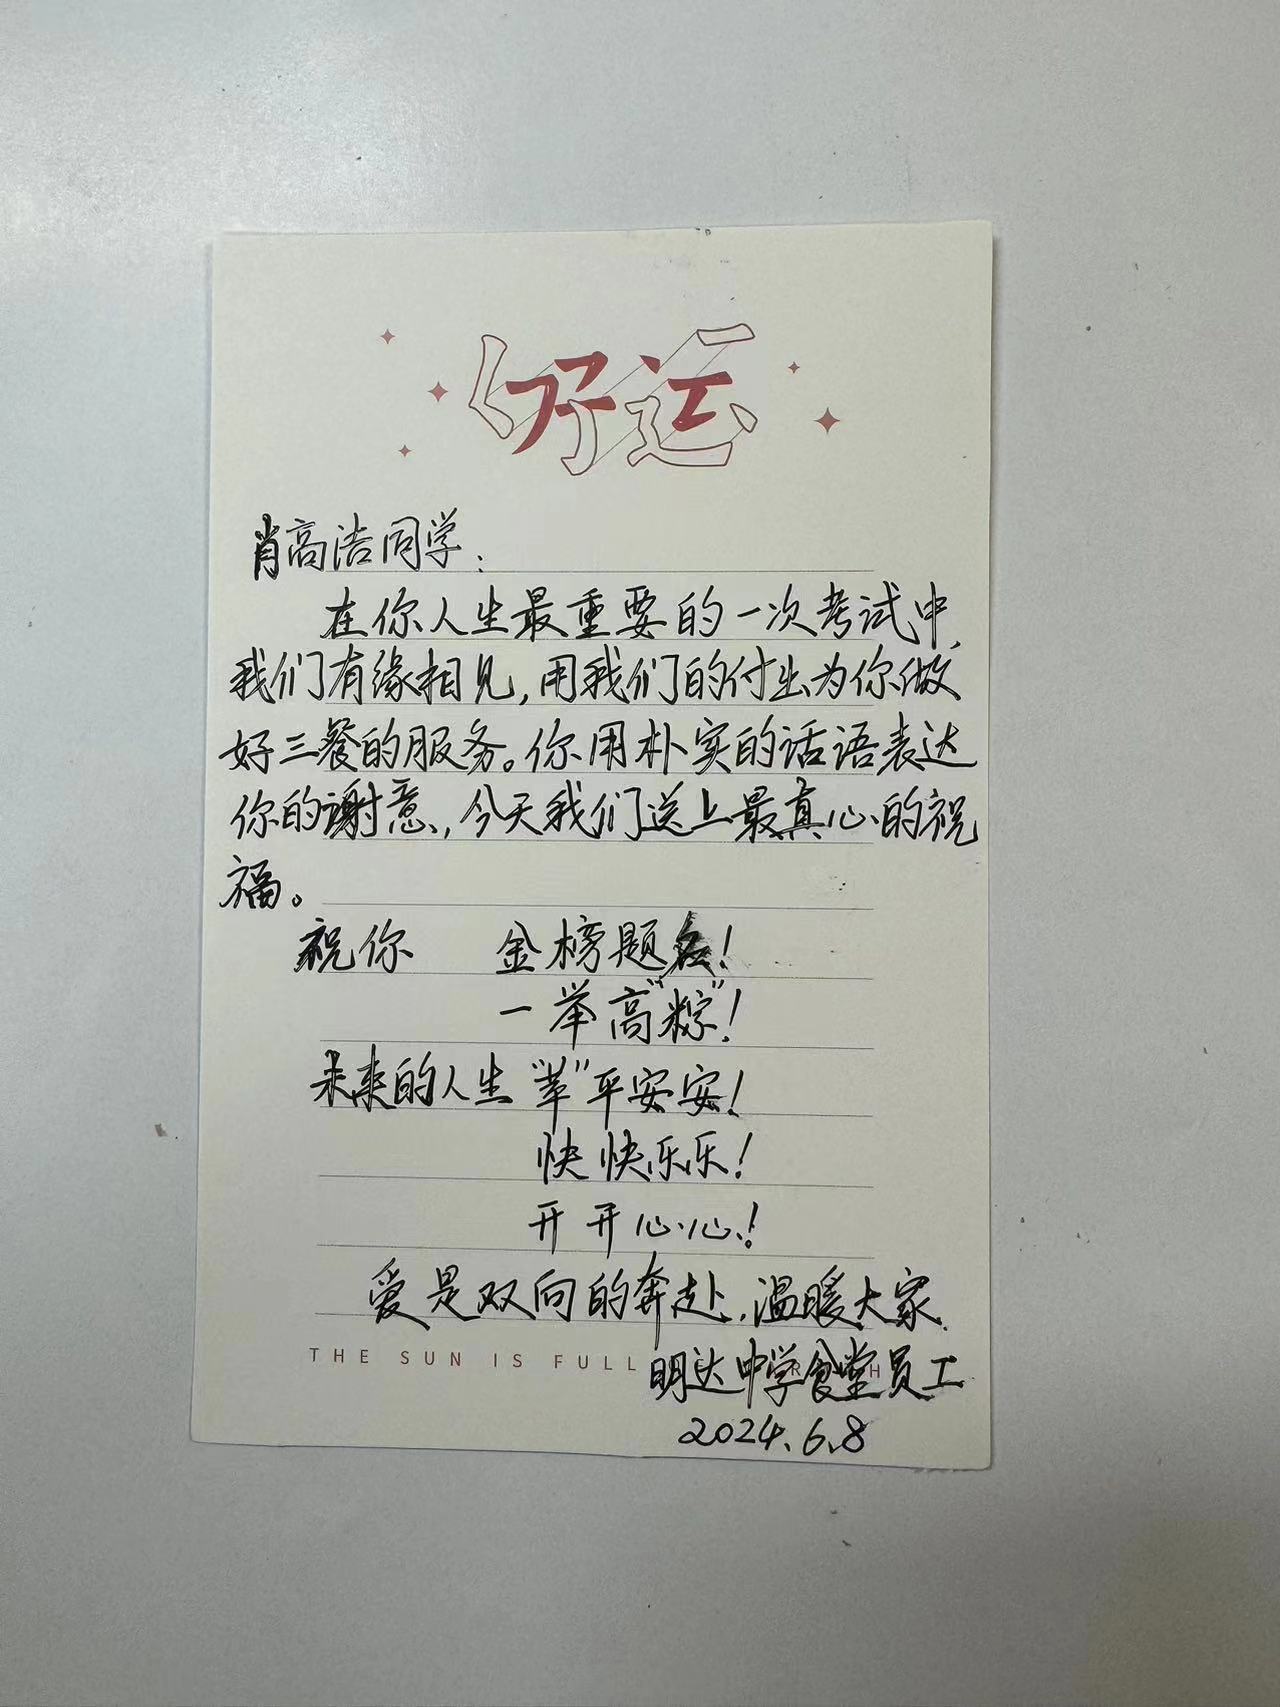 好运
肖高洁同学：
在你人生最重要的一次考试中，
我们有缘相见，用我们的付出为你做
好三餐的服务。你用朴实的话语表达
你的谢意，今天我们送上最真心的祝
福。
祝你 金榜题名！
一举高“粽”！
未来的人生“苹”平安安！
快快乐乐！
开开心心！
爱是双向的奔赴，温暖大家.
THE SUN IS FULL
明达中学食堂员工
2024.6.8